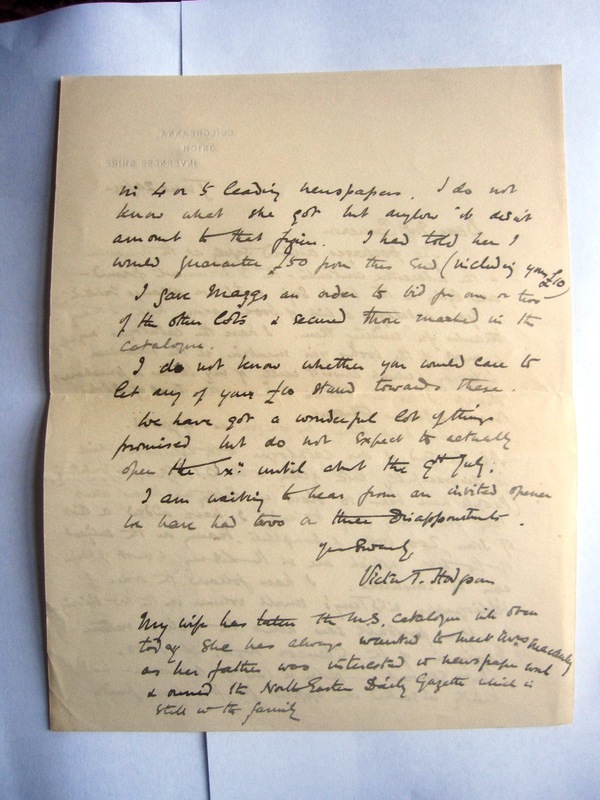 CUILCHEANNA,
ONICH,
INVERNESS-SHIRE
in 4 or 5 leading newspapers. I do not
know what she got but anyhow it didn't
amount to that figure. I had told her I
would guarantee £50 from this end (including your £10)
I gave Maggs an order to bid for one or two
of the other lots & secured those marked in the
catalogue.
I do not know whether you would care to
let any of your £10 stand towards these.
We have got a wonderful lot of things
promised but do not expect to actually
open the Ex: until about the 9th July.
I am waiting to hear from an invited opener
We have had two or three disappointments.
Yrs Sincerely
Victor T. Hodgson
My wife has taken the M.S. catalogue with
today She has always wanted to meet
as her father was interested in newspaper work
& owned the North Eastern Daily Gazette which is
still in the family